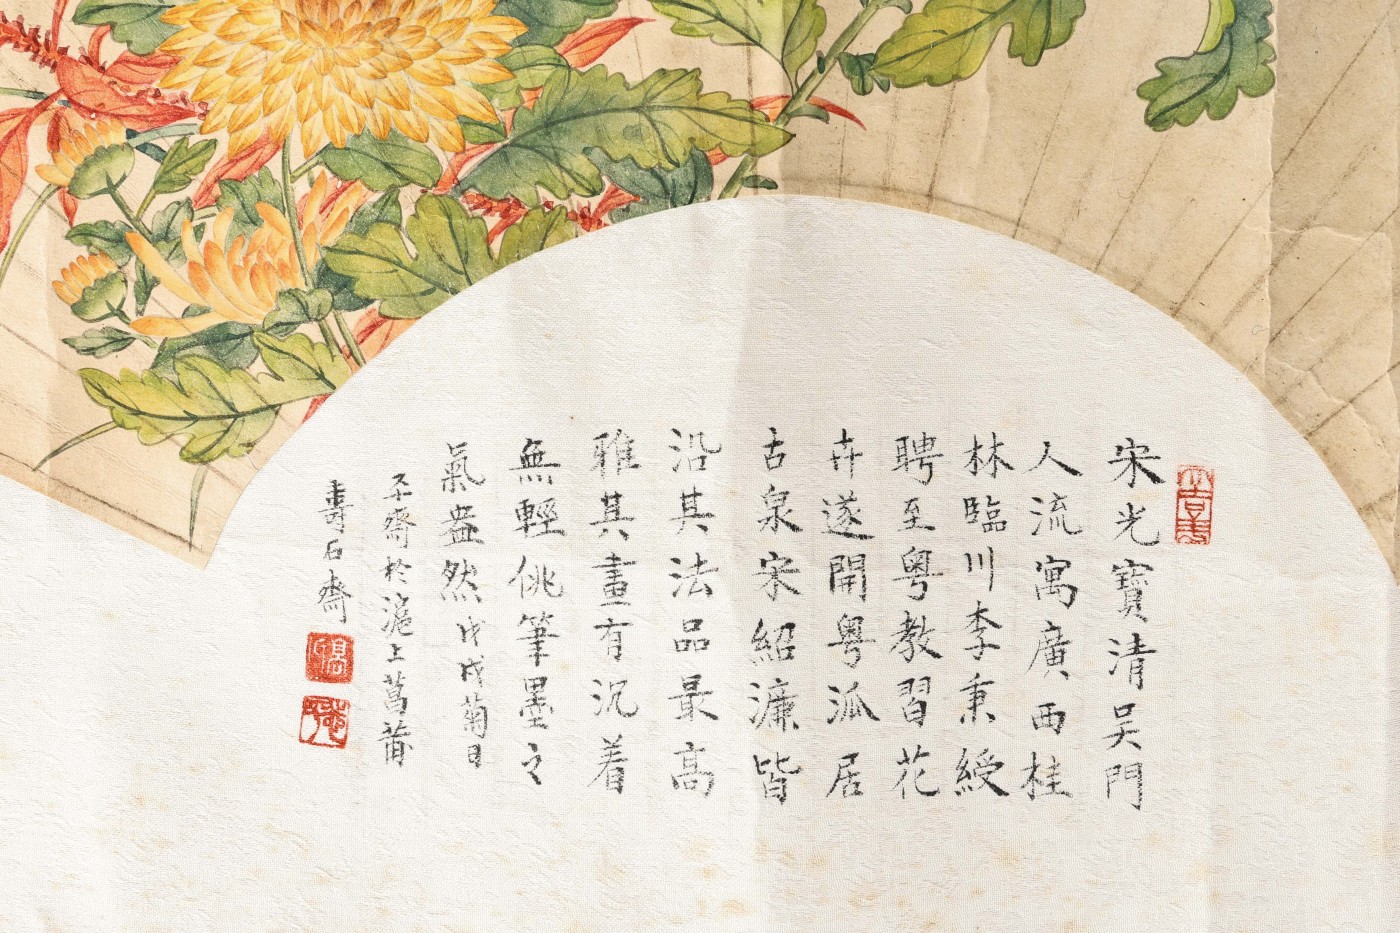 宋光寶清吳門
人流寓廣西桂
林臨川李秉綬
聘至粵教習花
卉遂開粵派居
古泉宋紹濂皆
沿其法品最高
雅其畫有沉着
無輕佻筆墨之
氣盎然戊戌菊月
齋於滬上菖蒲
壽石齋